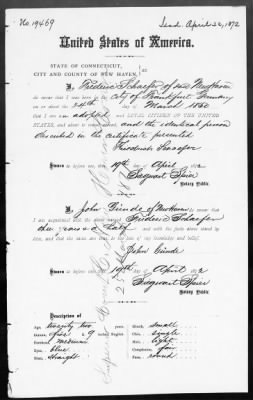 No. 19469
Send April 22, 1872
United States of America.
STATE OF CONNECTICUT,
CITY AND COUNTY OF NEW HAVEN, } ss:
I, Frederic Schaefer of said New Haven
do swear that I was born in the City of Frankfurt Germany
on or about the 24th day of March 1850
that I am an adopted and LOYAL CITIZEN OF THE UNITED
STATES, and about to travel abroad and the identical person
described in the certificate presented
Frederick Schaefer
Sworn to before me this 19th day of April 1872
Notary Public.
I, John of New Haven do swear that I
am acquainted with the above named Frederic Schaefer
and with the facts above stated by
him, and that the same are true to the best of my knowledge and belief.
John
Sworn to before me this 19th day of April 1872
Notary Public.
Description of
Age, twenty two years.
Stature, five 9 inches English.
Forehead, medium
Eyes, blue
Nose, straight
Mouth, small
Chin, single
Hair, light
Complexion, fair
Face, round